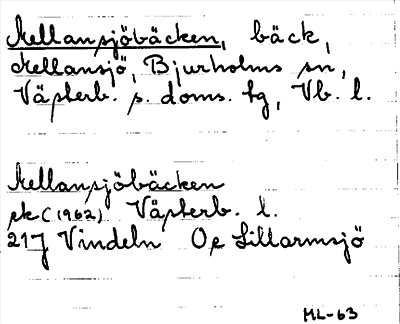 Mellansjöbäcken, bäck,
Mellansjö, Bjurholms sn,
Västerb. s. doms. tg, Vb. l.
Mellansjöbäcken
ek (1962) Västerb. l.
21J Vindeln Oe Lillarmsjö
ML-63